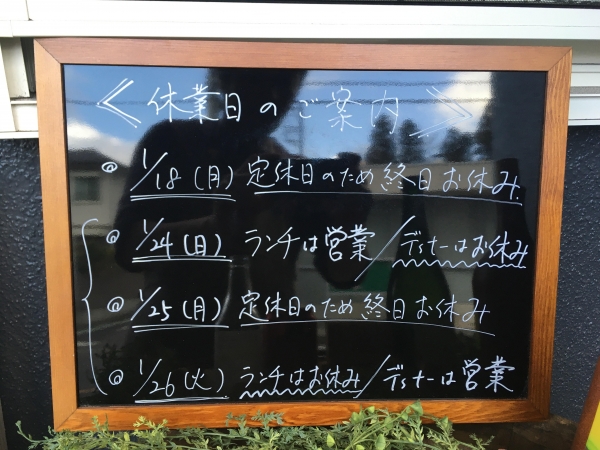 ≪休業日のご案内≫
@ 1/18(月) 定休日のため終日お休み.
@ 1/24(日) ランチは営業/ディナーはお休み
@ 1/25(月) 定休日のため終日お休み
@ 1/26(火) ランチはお休み/ディナーは営業